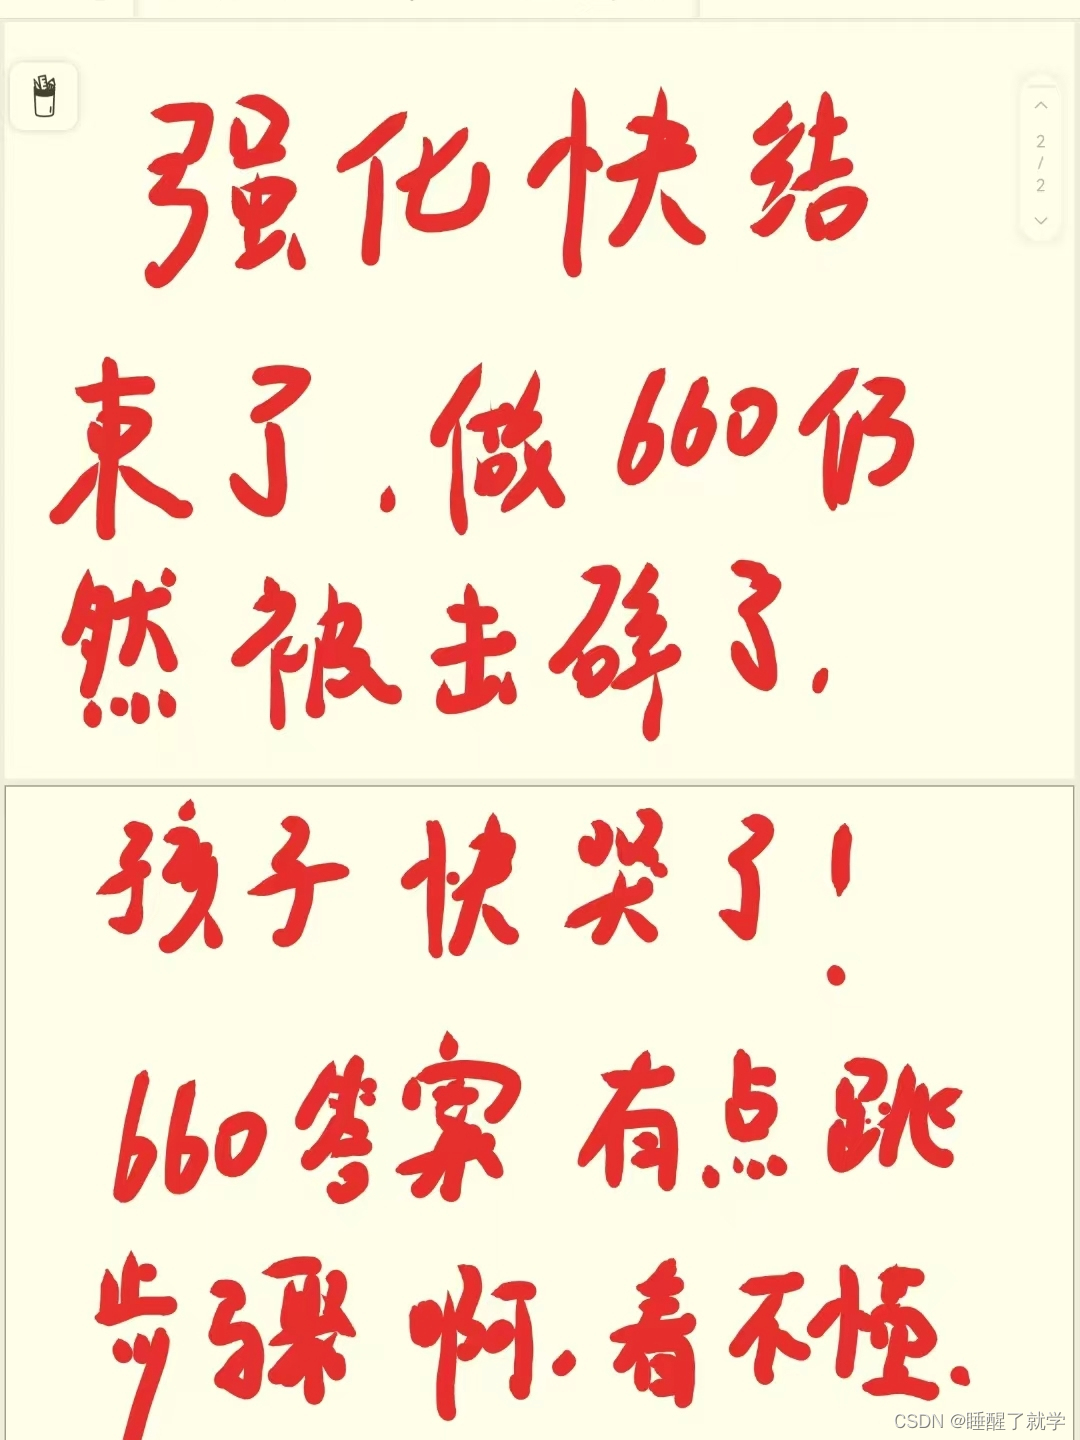 强化快结
2
/
2
束了.做660仍
然被击碎了.
孩子快哭了!
660答案有点跳
步骤啊.看不懂.
CSDN @睡醒了就学